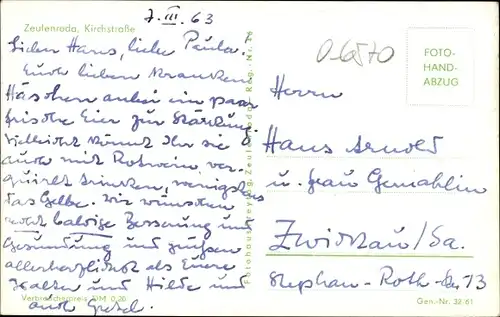 7. III. 63
Zeulenroda, Kirchstraße
Lieber Hans, liebe Paula.
Eurem lieben Kranken
Häschen anbei ein paar
frische Eier zur Stärkung.
Vielleicht könnt Ihr sie
auch mit Rotwein, ver-
quirlt trinken, wenigstens
das Gelbe. Wir wünschen
recht baldige Besserung und
Gesundung und grüßen
allerherzlichst als Eure
Walter und Hilde und
auch Gretel.
Verbraucherpreis DM 0,20
06570
FOTO-
HAND-
ABZUG
Herrn
Hans Arnold
u. Frau Gemahlin
Zwickau/Sa.
Stephan-Roth-Str 13
Gen.-Nr. 38/61